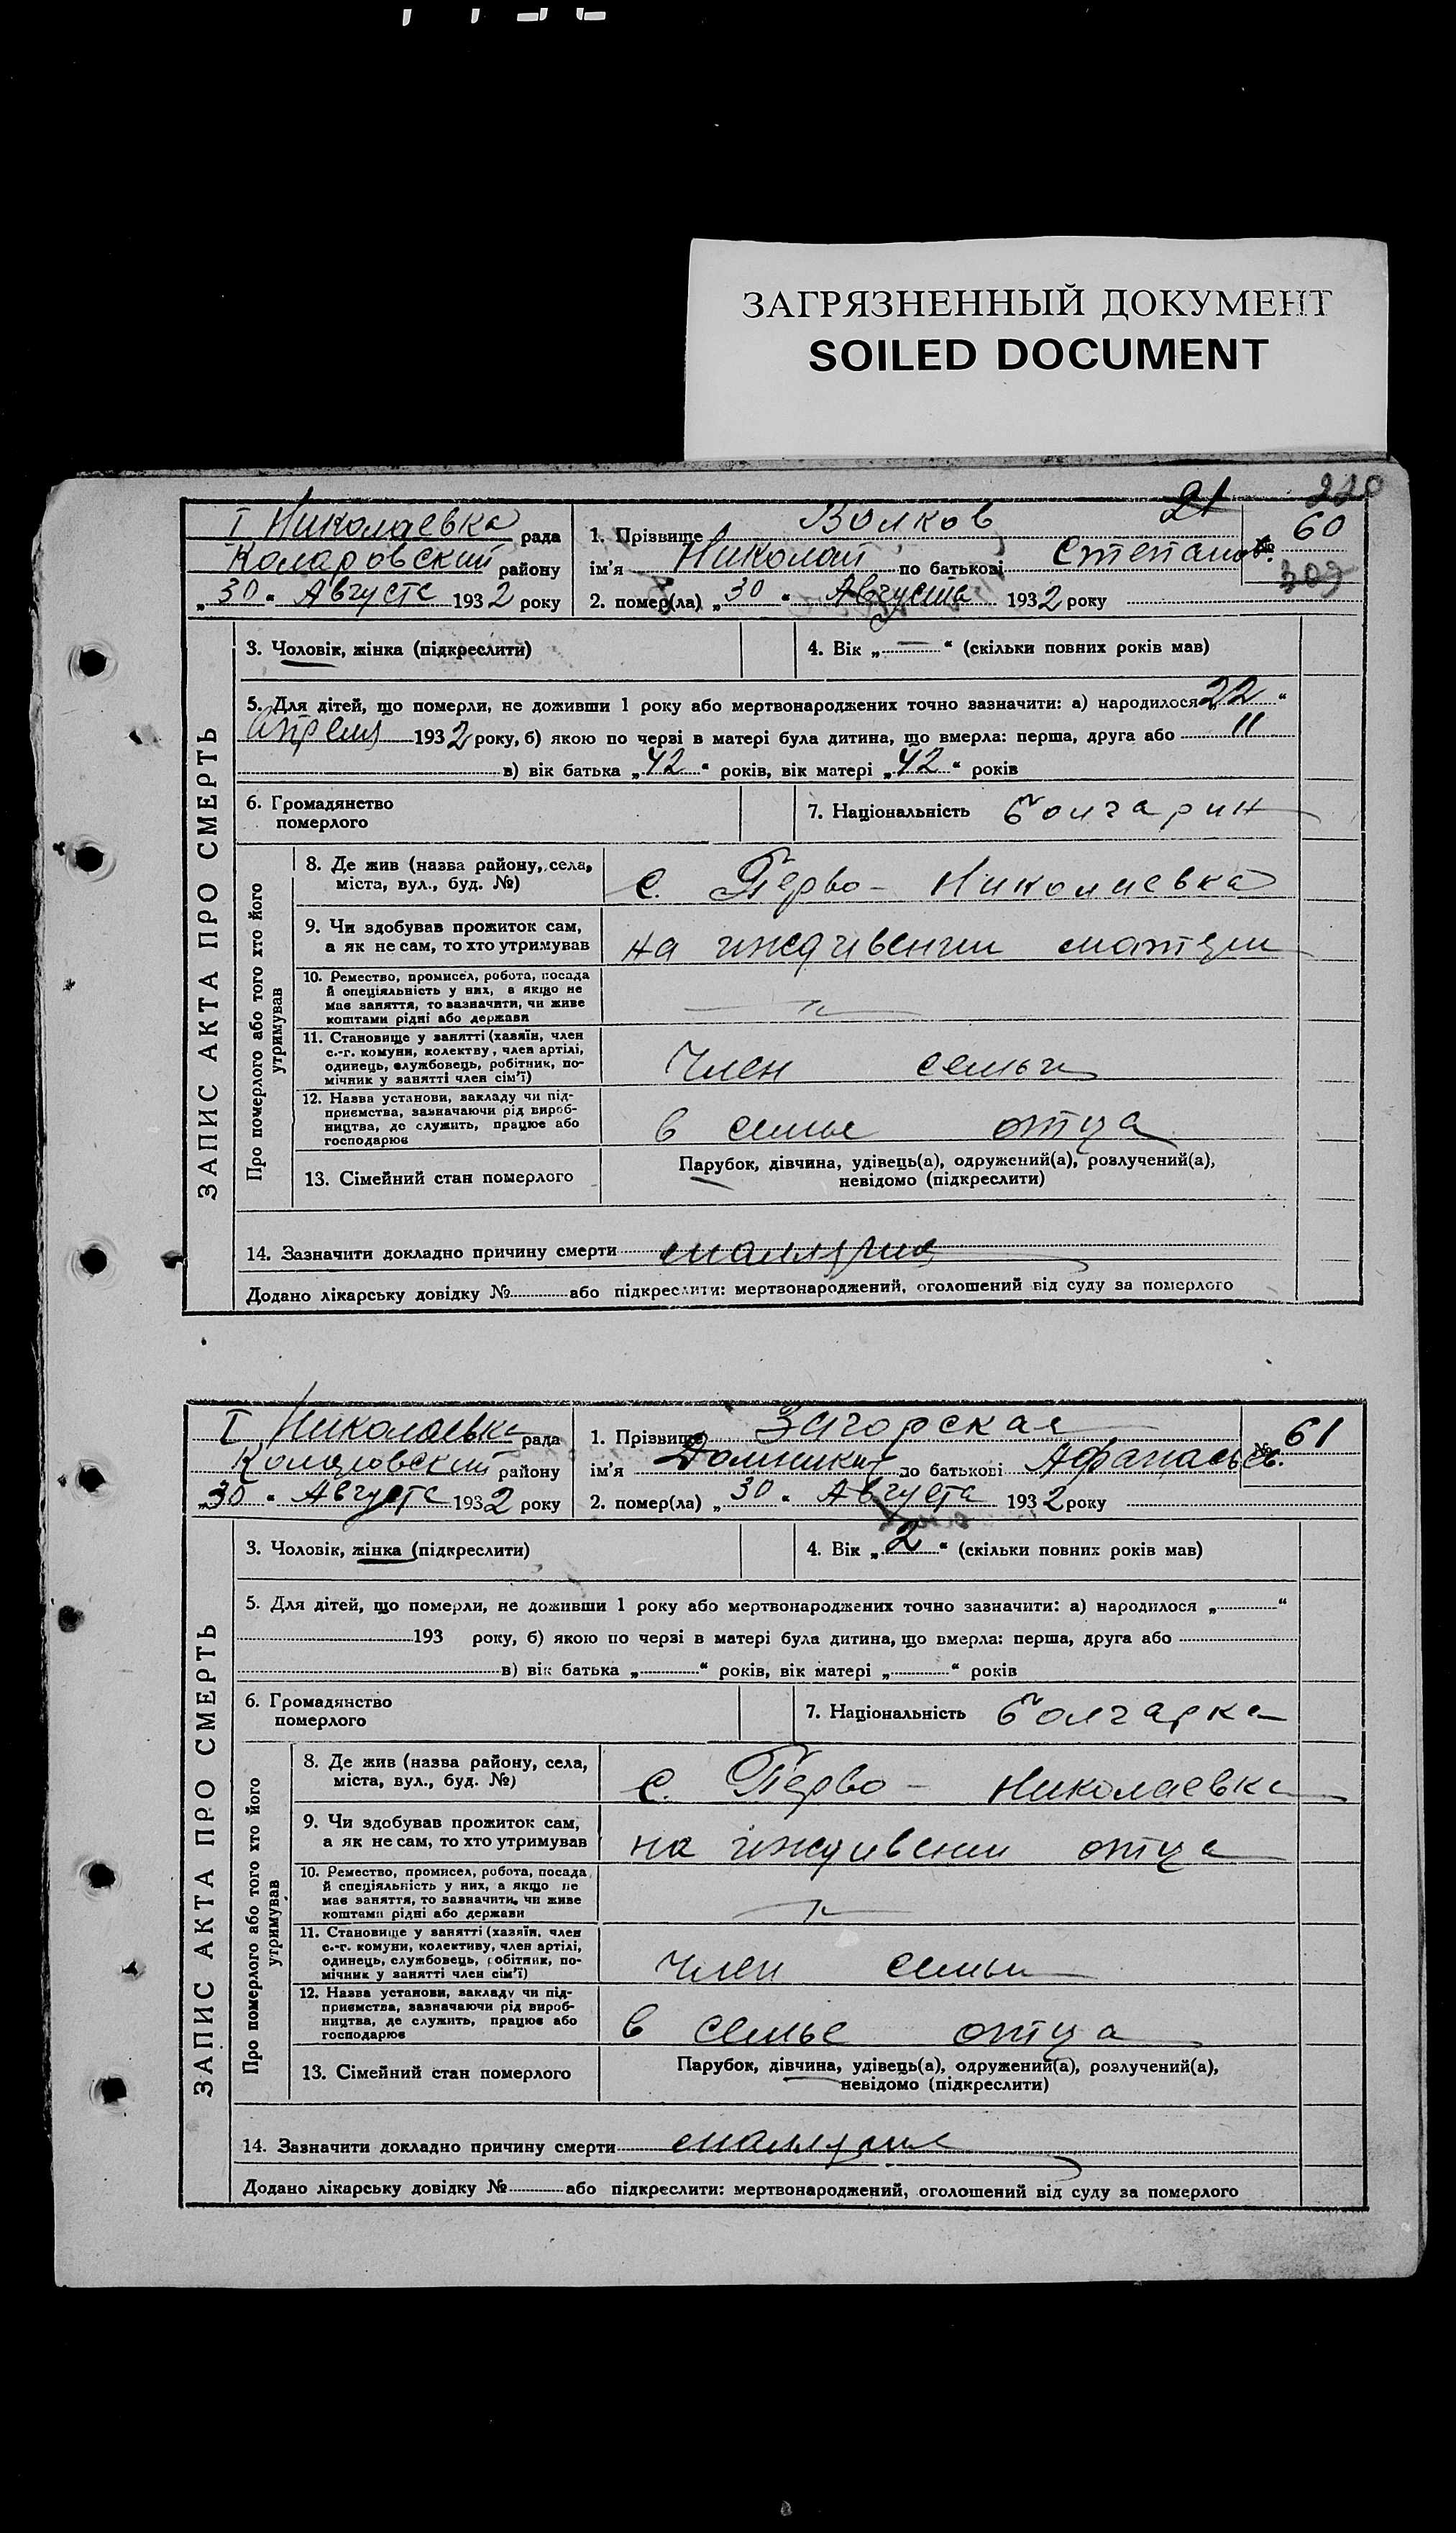 ЗАГРЯЗНЕННЫЙ ДОКУМЕНТ
SOILED DOCUMENT
21 220
I Николаевка рада
Коларовский району
„30“ Августа 1932 року
1. Прізвище Волков
ім'я Николай по батькові Степанов.
2. помер(ла) „30“ Августа 1932 року
№ 60
309
ЗАПИС АКТА ПРО СМЕРТЬ
3. Чоловік, жінка (підкреслити)
4. Вік „—“ (скільки повних років мав)
5. Для дітей, що померли, не доживши 1 року або мертвонароджених точно зазначити: а) народилося „22“
Апреля 1932 року, б) якою по черзі в матері була дитина, що вмерла: перша, друга або 11
в) вік батька „42“ років, вік матері „42“ років
6. Громадянство
померлого
7. Національність болгарин
Про померлого або того хто його
утримував
8. Де жив (назва району, села,
міста, вул., буд. №)
с. Перво- Николаевка
9. Чи здобував прожиток сам,
а як не сам, то хто утримував
на иждивении матери
10. Ремество, промисел, робота, посада
й спеціяльність у них, а якщо не
має заняття, то зазначити, чи живе
коштами рідні або держави
11. Становище у занятті (хазяїн, член
с.-г. комуни, колектву, член артілі,
одинець, службовець, робітник, по-
мічник у занятті член сім'ї)
Член семьи
12. Назва установи, закладу чи під-
приємства, зазначаючи рід вироб-
ництва, де служить, працює або
господарює
в семье отца
13. Сімейний стан померлого
Парубок, дівчина, удівець(а), одружений(а), розлучений(а),
невідомо (підкреслити)
14. Зазначити докладно причину смерти малярия
Додано лікарську довідку № або підкреслити: мертвонароджений, оголошений від суду за померлого
I Николаевка рада
Коларовский району
„30“ Августа 1932 року
1. Прізвище Загорская
ім'я Домникия по батькові Афанасьев.
2. помер(ла) „30“ Августа 1932 року
№ 61
ЗАПИС АКТА ПРО СМЕРТЬ
3. Чоловік, жінка (підкреслити)
4. Вік „2“ (скільки повних років мав)
5. Для дітей, що померли, не доживши 1 року або мертвонароджених точно зазначити: а) народилося „“
193 року, б) якою по черзі в матері була дитина, що вмерла: перша, друга або
в) вік батька „“ років, вік матері „“ років
6. Громадянство
померлого
7. Національність болгарка
Про померлого або того хто його
утримував
8. Де жив (назва району, села,
міста, вул., буд. №)
с. Перво- Николаевка
9. Чи здобував прожиток сам,
а як не сам, то хто утримував
на иждивении отца
10. Ремество, промисел, робота, посада
й спеціяльність у них, а якщо не
має заняття, то зазначити, чи живе
коштами рідні або держави
11. Становище у занятті (хазяїн, член
с.-г. комуни, колективу, член артілі,
одинець, службовець, робітник, по-
мічник у занятті член сім'ї)
Член семьи
12. Назва установи, закладу чи під-
приємства, зазначаючи рід вироб-
ництва, де служить, працює або
господарює
в семье отца
13. Сімейний стан померлого
Парубок, дівчина, удівець(а), одружений(а), розлучений(а),
невідомо (підкреслити)
14. Зазначити докладно причину смерти малярия
Додано лікарську довідку № або підкреслити: мертвонароджений, оголошений від суду за померлого